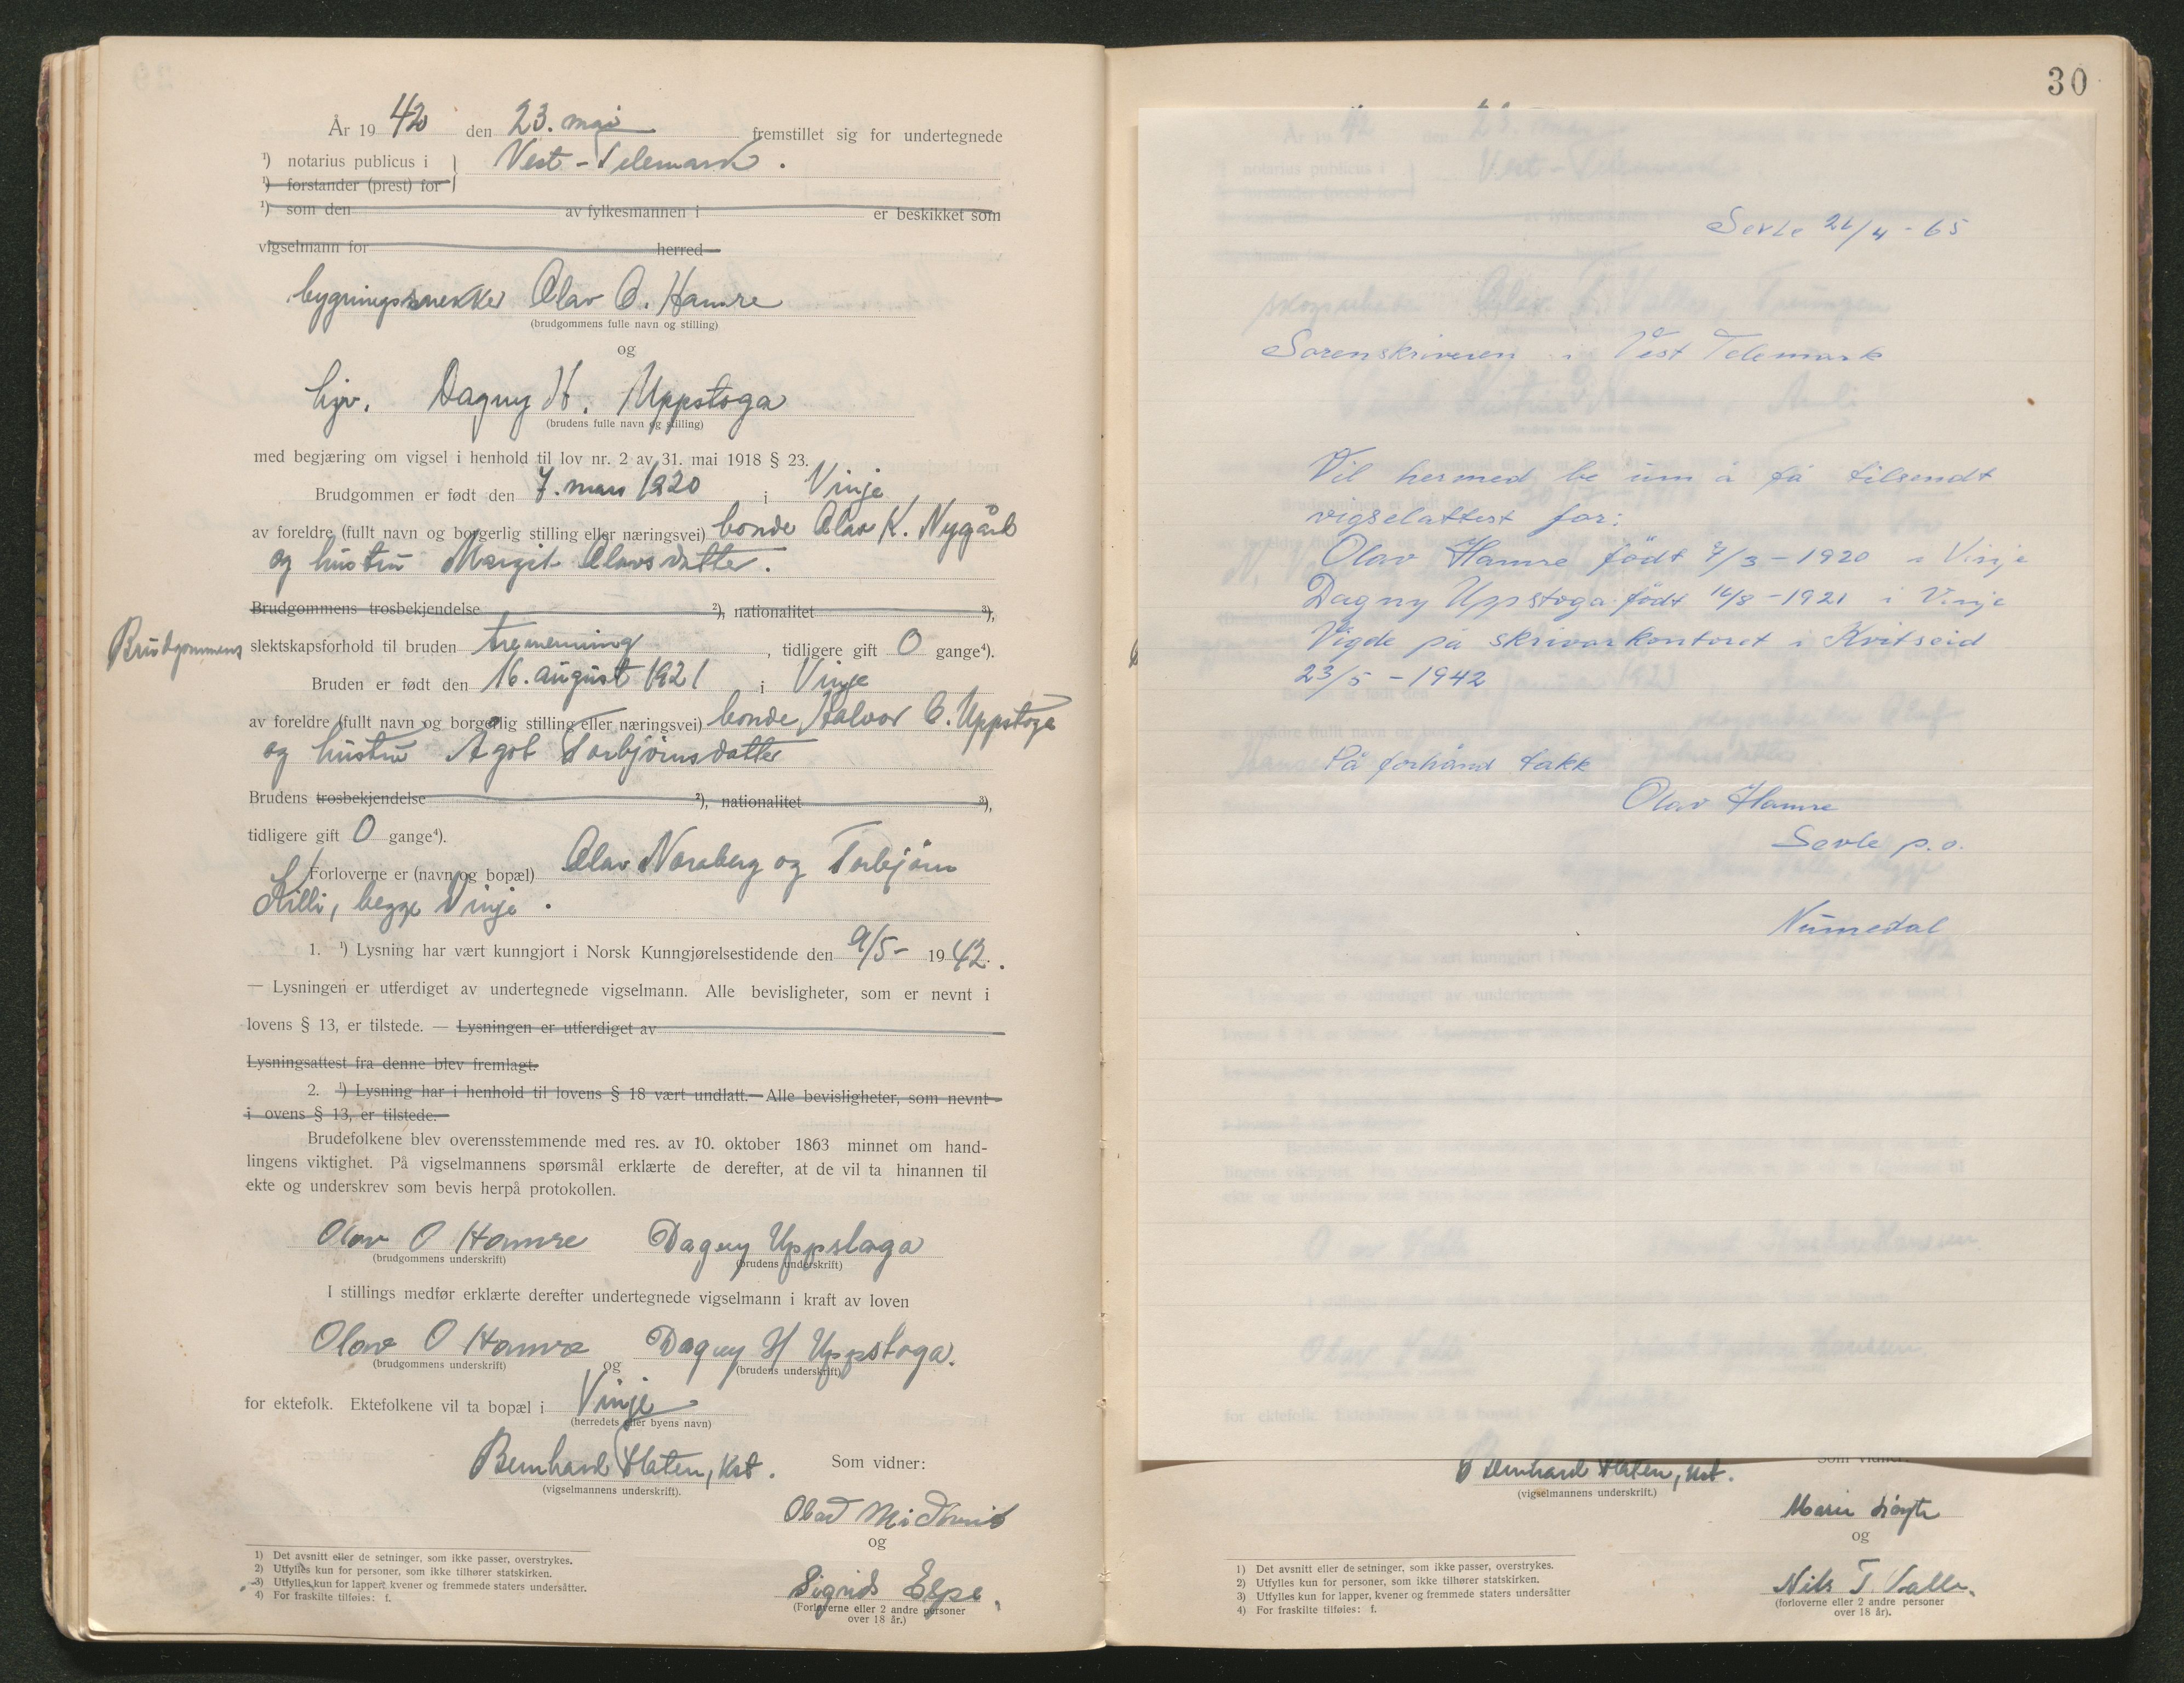 År 19 42 den 23. mai fremstillet sig for undertegnede
1) notarius publicus i } Vest-Telemark.
1) forstander (prest) for
1) som den av fylkesmannen i er beskikket som
vigselmann for herred
bygningssnekker Olav O. Hamre
(brudgommens fulle navn og stilling)
og
hjv. Dagny H. Uppstoga
(brudens fulle navn og stilling)
med begjæring om vigsel i henhold til lov nr. 2 av 31. mai 1918 § 23.
Brudgommen er født den 7. mars 1920 i Vinje
av foreldre (fullt navn og borgerlig stilling eller næringsvei) bonde Olav K. Nygård
og hustru Margit Olavsdatter.
Brudgommens trosbekjendelse 2), nationalitet 3),
Brudgommens slektskapsforhold til bruden tremenning, tidligere gift 0 gange4).
Bruden er født den 16. august 1921 i Vinje
av foreldre (fullt navn og borgerlig stilling eller næringsvei) bonde Halvor O. Uppstoga
og hustru Agot Torbjørnsdatter
Brudens trosbekjendelse 2), nationalitet 3),
tidligere gift 0 gange4).
Forloverne er (navn og bopæl) Olav Noraberg og Torbjørn
Killi, begge Vinje.
1. 1) Lysning har vært kunngjort i Norsk Kunngjørelsestidende den 9/5- 1942.
— Lysningen er utferdiget av undertegnede vigselmann. Alle bevisligheter, som er nevnt i
lovens § 13, er tilstede. — Lysningen er utferdiget av
Lysningsattest fra denne blev fremlagt.
2. 1) Lysning har i henhold til lovens § 18 vært undlatt.— Alle bevisligheter, som nevnt
i ovens § 13, er tilstede.—
Brudefolkene blev overensstemmende med res. av 10. oktober 1863 minnet om hand-
lingens viktighet. På vigselmannens spørsmål erklærte de derefter, at de vil ta hinannen til
ekte og underskrev som bevis herpå protokollen.
Olav O Hamre Dagny Uppstoga
(brudgommens underskrift) (brudens underskrift)
I stillings medfør erklærte derefter undertegnede vigselmann i kraft av loven
Olav O Hamre og Dagny H Uppstoga.
(brudgommens underskrift) (brudens underskrift)
for ektefolk. Ektefolkene vil ta bopæl i Vinje
(herredets eller byens navn)
Bernhard Flaten, kst.
(vigselmannens underskrift).
Som vidner:
og
Sigrid Espe.
(Forloverne eller 2 andre personer
over 18 år.)
1) Det avsnitt eller de setninger, som ikke passer, overstrykes.
2) Utfylles kun for personer, som ikke tilhører statskirken.
3) Utfylles kun for lapper, kvener og fremmede staters undersåtter.
4) For fraskilte tilføies: f.
30
Sevle 26/4 - 65
Sorenskriveren i Vest Telemark
Vil hermed be um å få tilsendt
vigselattest for:
Olav Hamre født 7/3 - 1920 i Vinje
Dagny Uppstoga født 16/8 - 1921 i Vinje
Vigde på skrivarkontoret i Kvitseid
23/5 - 1942
På forhånd takk
Olav Hamre
Sevle p.o.
Numedal
Bernhard Flaten, kst.
(vigselmannens underskrift.)
Som vidner:
og
Nils T. Valle.
(forloverne eller 2 andre personer
over 18 år).
1) Det avsnitt eller de setninger, som ikke passer, overstrykes.
2) Utfylles kun for personer, som ikke tilhører statskirken.
3) Utfylles kun for lapper, kvener og fremmede staters undersåtter
4) For fraskilte tilføies: f.